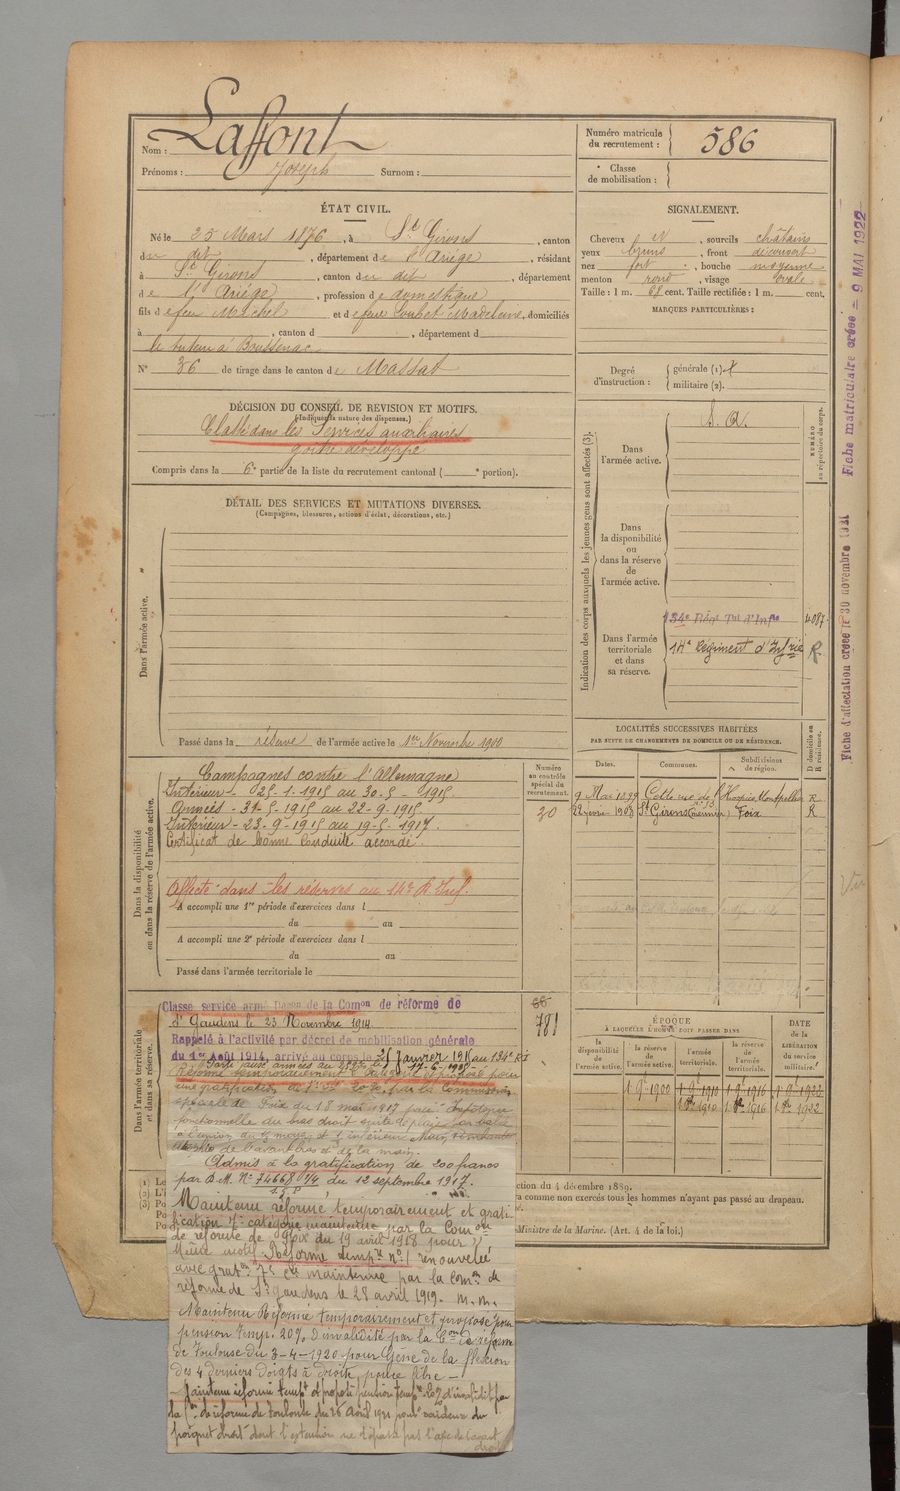 Nom : Laffont
Prénoms : Joseph Surnom :
Numéro matricule du recrutement : 586
Classe de mobilisation :
ÉTAT CIVIL.
Né le 25 Mars 1876, à St Girons, canton
du dit, département de l'Ariège, résidant
à St Girons, canton du dit, département
de l'Ariège, profession de domestique
fils de feu Michel et de feue Loubet Madeleine, domiciliés
à , canton d , département d
le tuteur à Boussenac
No 36 de tirage dans le canton de Massat
SIGNALEMENT.
Cheveux et, sourcils châtains
yeux bruns, front découvert
nez fort, bouche moyenne
menton rond, visage ovale
Taille : 1 m. cent. Taille rectifiée : 1 m. cent.
MARQUES PARTICULIÈRES :
Degré d'instruction : générale (1).
militaire (2).
DÉCISION DU CONSEIL DE REVISION ET MOTIFS.
(Indiquer la nature des dispenses.)
Classé dans les Services auxiliaires
goitre développé
Compris dans la 6e partie de la liste du recrutement cantonal ( e portion).
DÉTAIL DES SERVICES ET MUTATIONS DIVERSES.
(Campagnes, blessures, actions d'éclat, décorations, etc.)
Dans l'armée active.
Passé dans la réserve de l'armée active le 1er Novembre 1900
Indication des corps auxquels les jeunes gens sont affectés (3).
NUMÉRO au répertoire du corps.
Dans l'armée active.
S. A.
Dans la disponibilité ou dans la réserve de l'armée active.
Dans l'armée territoriale et dans sa réserve.
134e Régt Tal d'Infie
14e Régiment d'Infrie R
Fiche d'affectation créée le 30 novembre 1931
Fiche matriculaire créée = 9 MAI 1922
LOCALITÉS SUCCESSIVES HABITÉES
PAR SUITE DE CHANGEMENTS DE DOMICILE OU DE RÉSIDENCE.
Dates. Communes. Subdivisions de région. D domicile ou R résidence.
9 Mai 1899 Cette rue de l'Hospice Montpellier R
22 1908 St Girons Foix R
Dans la disponibilité ou dans la réserve de l'armée active.
Numéro au contrôle spécial du recrutement.
30
Campagnes contre l'Allemagne
Intérieur - 25-1-1915 au 30-5-1915
Armées - 31-5-1915 au 22-9-1915
Intérieur - 23-9-1915 au 19-5-1917.
Certificat de bonne conduite accordé.
Affecté dans les réserves au 14e R. Inf.
A accompli une 1re période d'exercices dans l
du au
A accompli une 2e période d'exercices dans l
du au
Passé dans l'armée territoriale le
Dans l'armée territoriale et dans sa réserve.
781
Classé service armé Décon de la Comon de réforme de
St Gaudens le 23 Novembre 1914
Rappelé à l'activité par décret de mobilisation générale
du 1er Août 1914, arrivé au corps le 25 Janvier 1915 au 134e RI
Réformé temporairement
une gratification par la Commission
spéciale de Foix du 18 mai 1917 pour Impotence
fonctionnelle du bras droit suite de plaie par balle
de l'avant bras et de la main.
Admis à la gratification de 200 francs
par D.M. No 74668 du 12 septembre 1917.
Maintenu réformé temporairement et grati-
fication 7e catégorie maintenue par la Comon
de réforme de Foix du 19 avril 1918 pour
même motif. Réforme tempre no 1 renouvelée
avec graton 7e cie maintenue par la Comon de
réforme de St Gaudens le 28 avril 1919. m.m.
Maintenu Réformé temporairement et proposé pour
pension temp. 20% d'invalidité par la Con de réforme
de Toulouse du 3-4-1920 pour Gêne de la flexion
des 4 derniers doigts à droite, pouce libre -
Maintenu réformé tempt et proposé pension tempre 20% d'invalidité par
la Con de réforme de Toulouse du 26 Avril 1921 pour raideur du
poignet droit dont l'extension ne dépasse pas l'axe de l'avant
droit
ÉPOQUE
À LAQUELLE L'HOMME DOIT PASSER DANS
la disponibilité de l'armée active. la réserve de l'armée active. l'armée territoriale. la réserve de l'armée territoriale.
DATE de la LIBÉRATION du service militaire.
1 9bre 1900 1 9bre 1910 1 9bre 1916 1 9bre 1922
1 8bre 1910 1 8bre 1916 1 8bre 1922
ction du 4 décembre 1889.
ra comme non exercés tous les hommes n'ayant pas passé au drapeau.
Ministre de la Marine. (Art. 4 de la loi.)